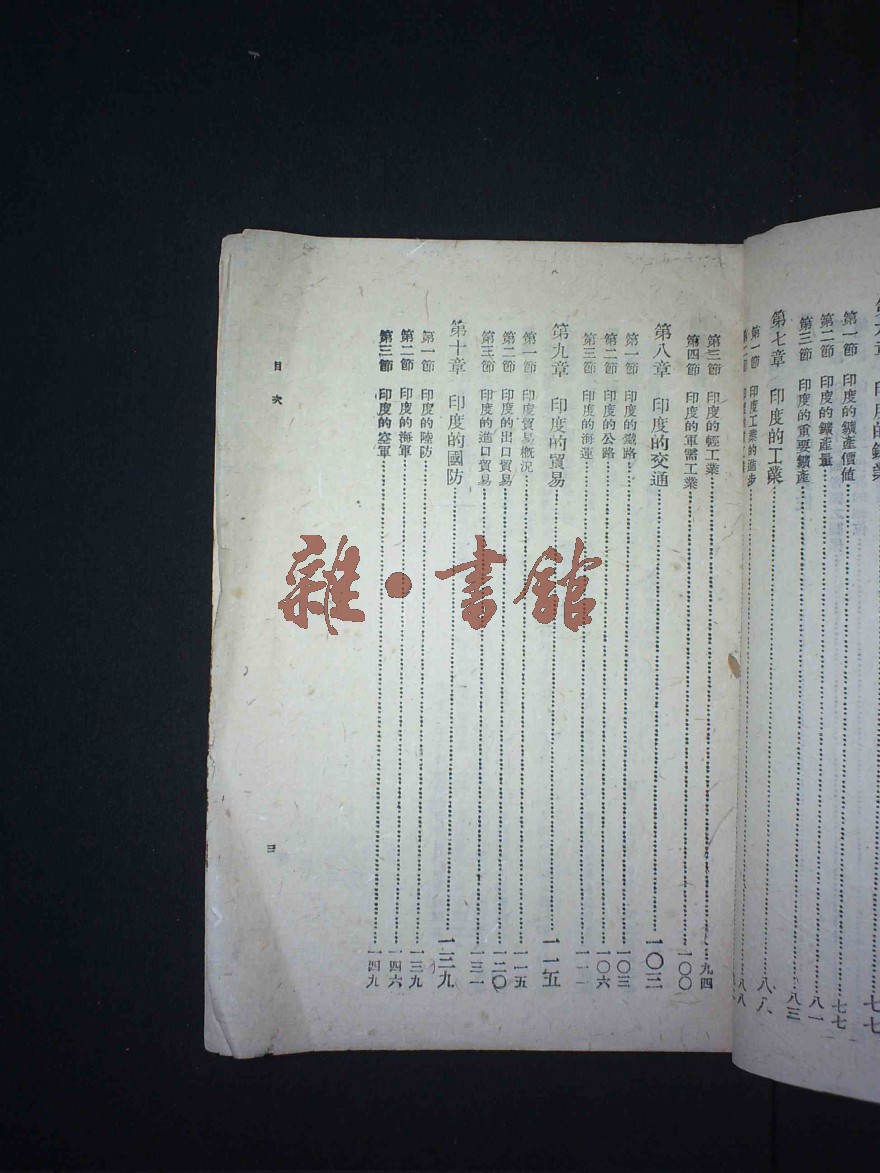 印度的鑛業 七七
第一節 印度的鑛產價值 七七
第二節 印度的鑛產量 八一
第三節 印度的重要鑛產 八三
第七章 印度的工業 八八
第一節 印度工業的進步 八八
第三節 印度的輕工業 九四
第四節 印度的軍需工業 一〇〇
第八章 印度的交通 一〇三
第一節 印度的鐵路 一〇三
第二節 印度的公路 一〇六
第三節 印度的海運 一一一
第九章 印度的貿易 一一五
第一節 印度貿易概況 一一五
第二節 印度的出口貿易 一二〇
第三節 印度的進口貿易 一三一
第十章 印度的國防 一三九
第一節 印度的陸防 一三九
第二節 印度的海軍 一四六
第三節 印度的空軍 一四九
目次 三
雜·書館